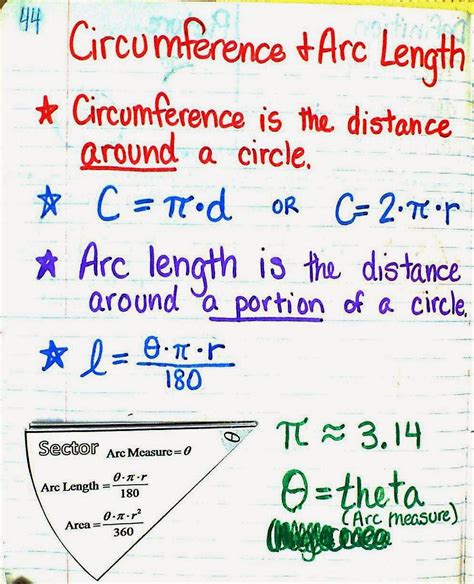 44
Circumference + Arc Length
★ Circumference is the distance
around a circle.
☆ C = π·d OR C = 2·π·r
★ Arc length is the distance
around a portion of a circle.
☆ l = θ·π·r / 180
Sector
θ
Arc Measure = θ
Arc Length = θ·π·r / 180
Area = θ·π·r² / 360
π ≈ 3.14
θ = theta
(Arc measure)